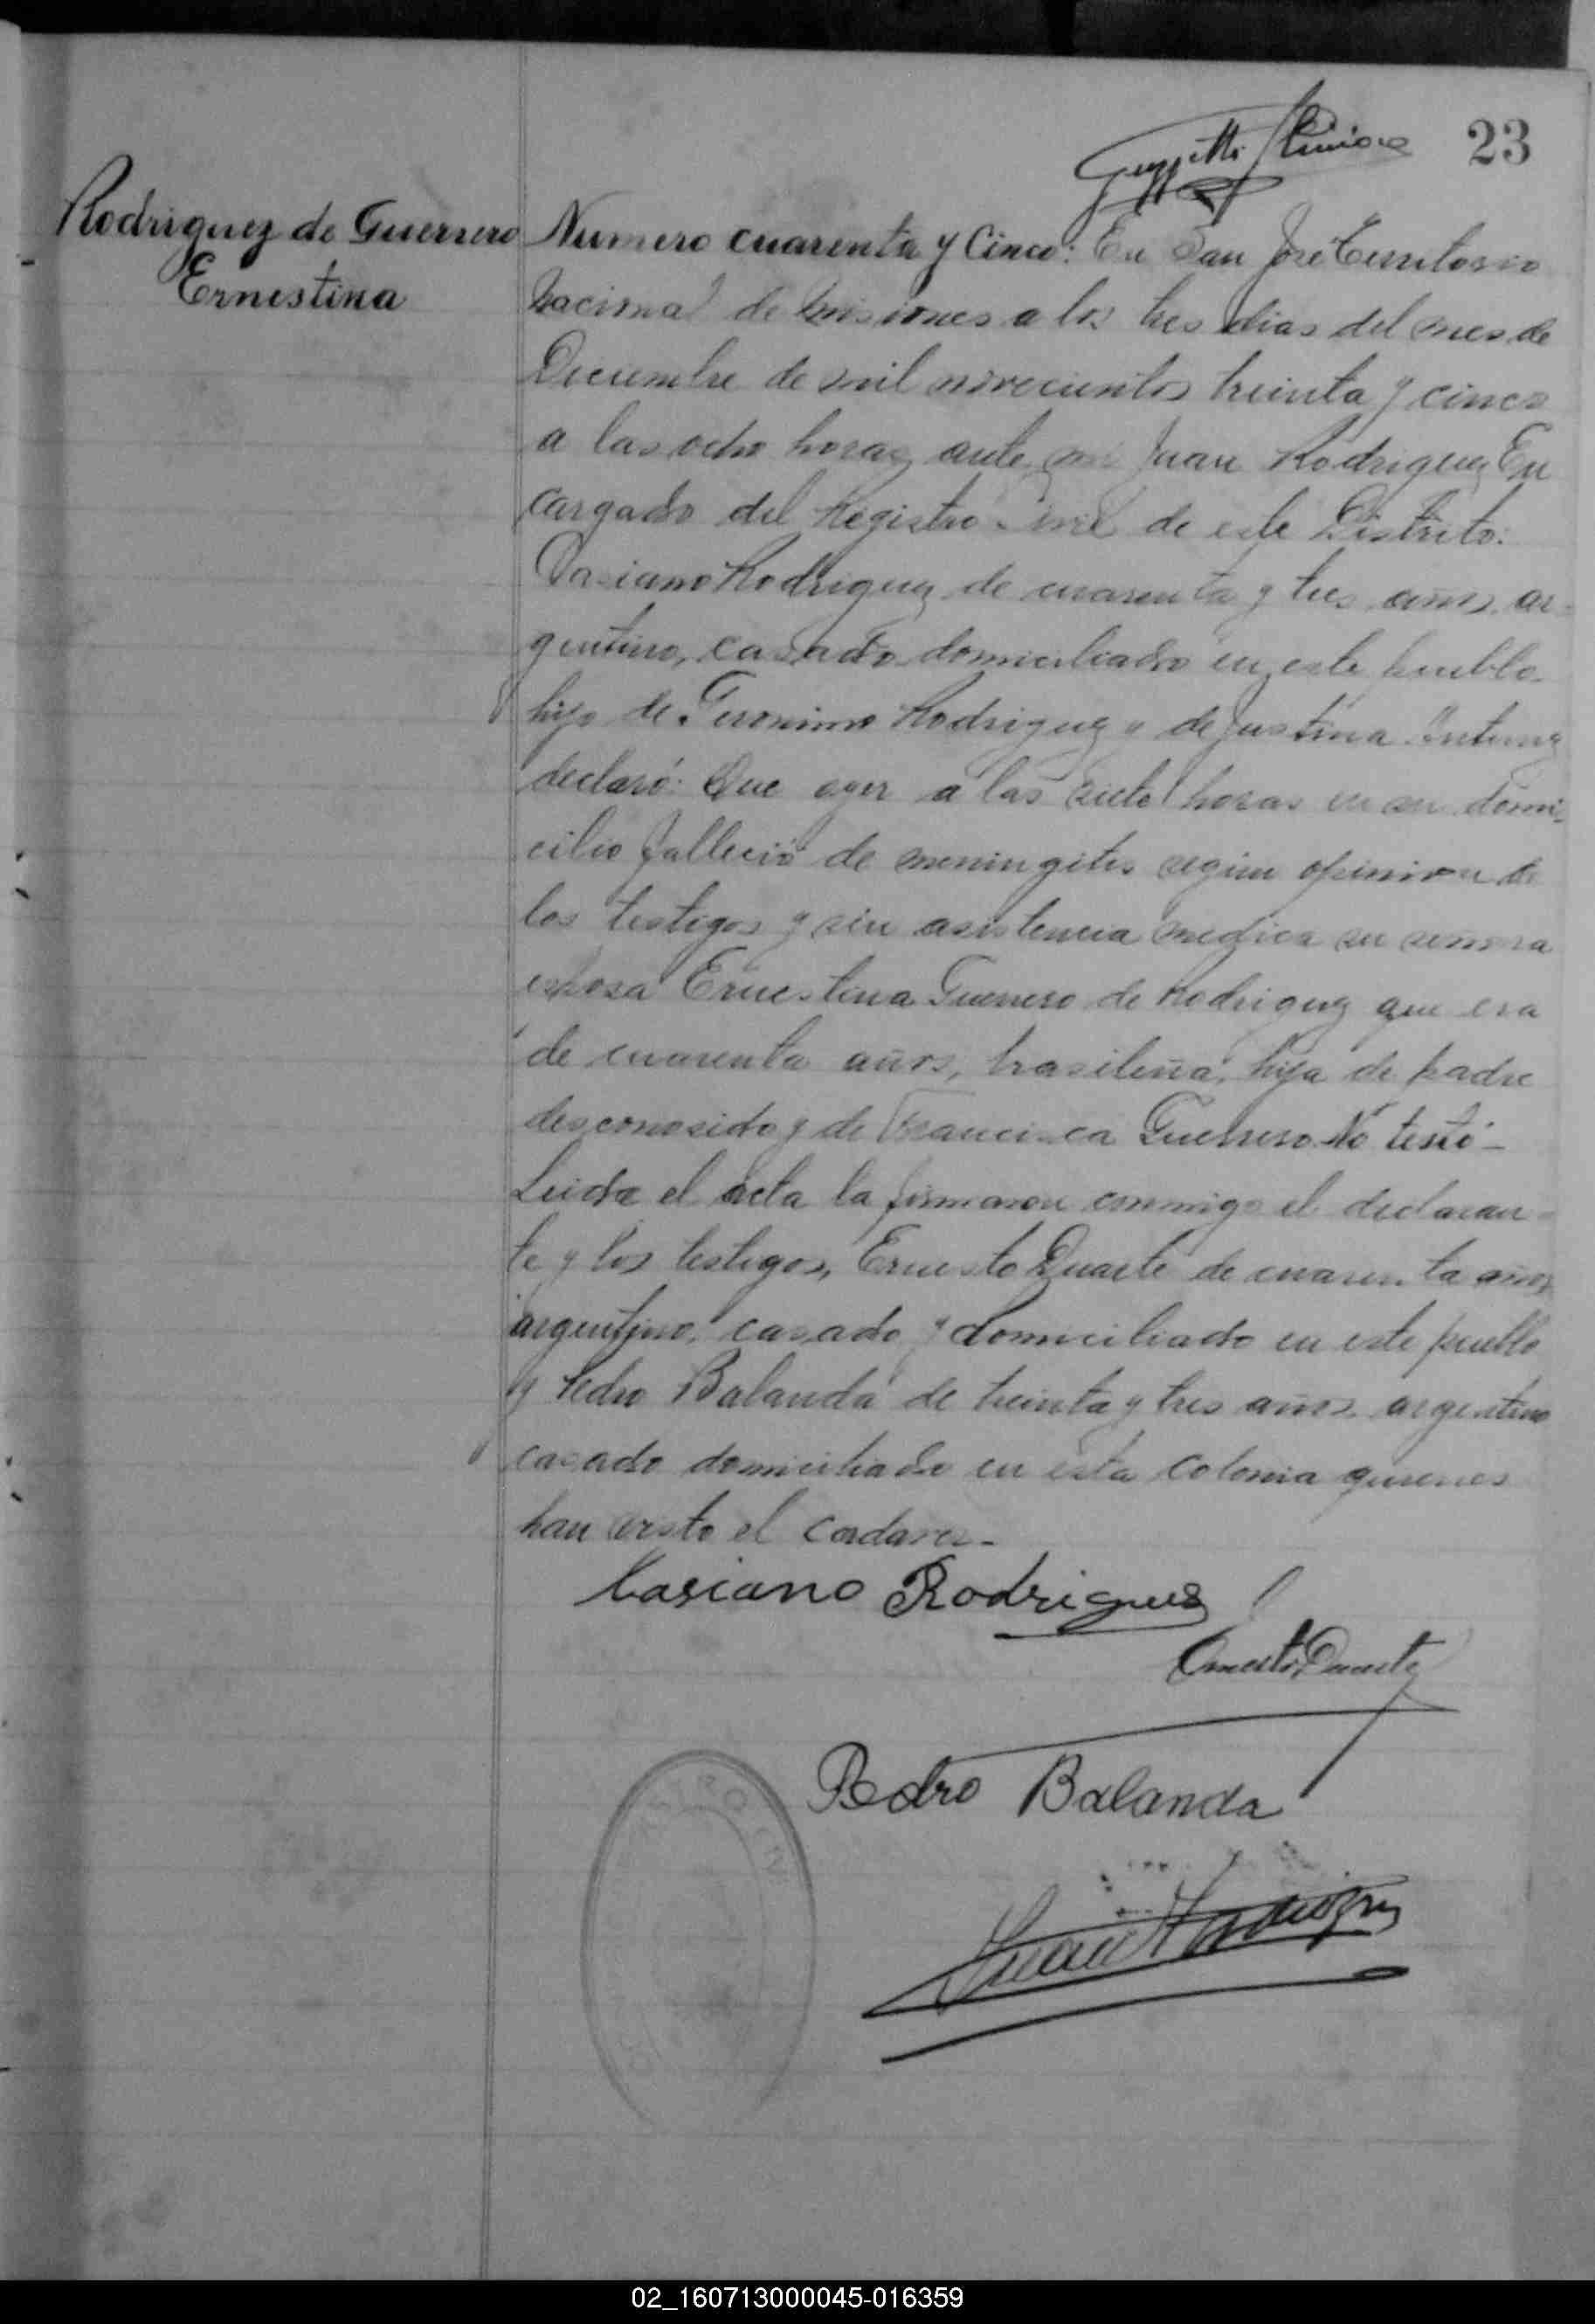 23
Rodriguez de Guerrero
Ernestina
Numero cuarenta y Cinco: En San José Territorio
Nacional de Misiones a los tres dias del mes de
Diciembre de mil novecientos treinta y cinco
a las ocho horas, ante mi Juan Rodriguez En
cargado del Registro Civil de este Distrito:
Casiano Rodriguez de cuarenta y tres años, ar-
gentino, casado domiciliado en este pueblo
hijo de Geronimo Rodriguez y de Justina
declaró: Que ayer a las siete horas en su domi-
cilio falleció de meningitis segun opinion de
los testigos y sin asistencia medica su señora
esposa Ernestina Guerrero de Rodriguez que era
de cuarenta años, brasileña, hija de padre
desconosido y de Francisca Guerrero. No testó-
Leida el acta la firmaron conmigo el declaran-
te y los testigos, Ernesto Duarte de cuarenta años
argentino, casado y domiciliado en este pueblo
y Pedro Balanda de treinta y tres años argentino
casado domiciliado en esta colonia quienes
han visto el cadaver-
Casiano Rodriguez
Ernesto Duarte
Pedro Balanda
Juan Rodriguez
02_160713000045-016359